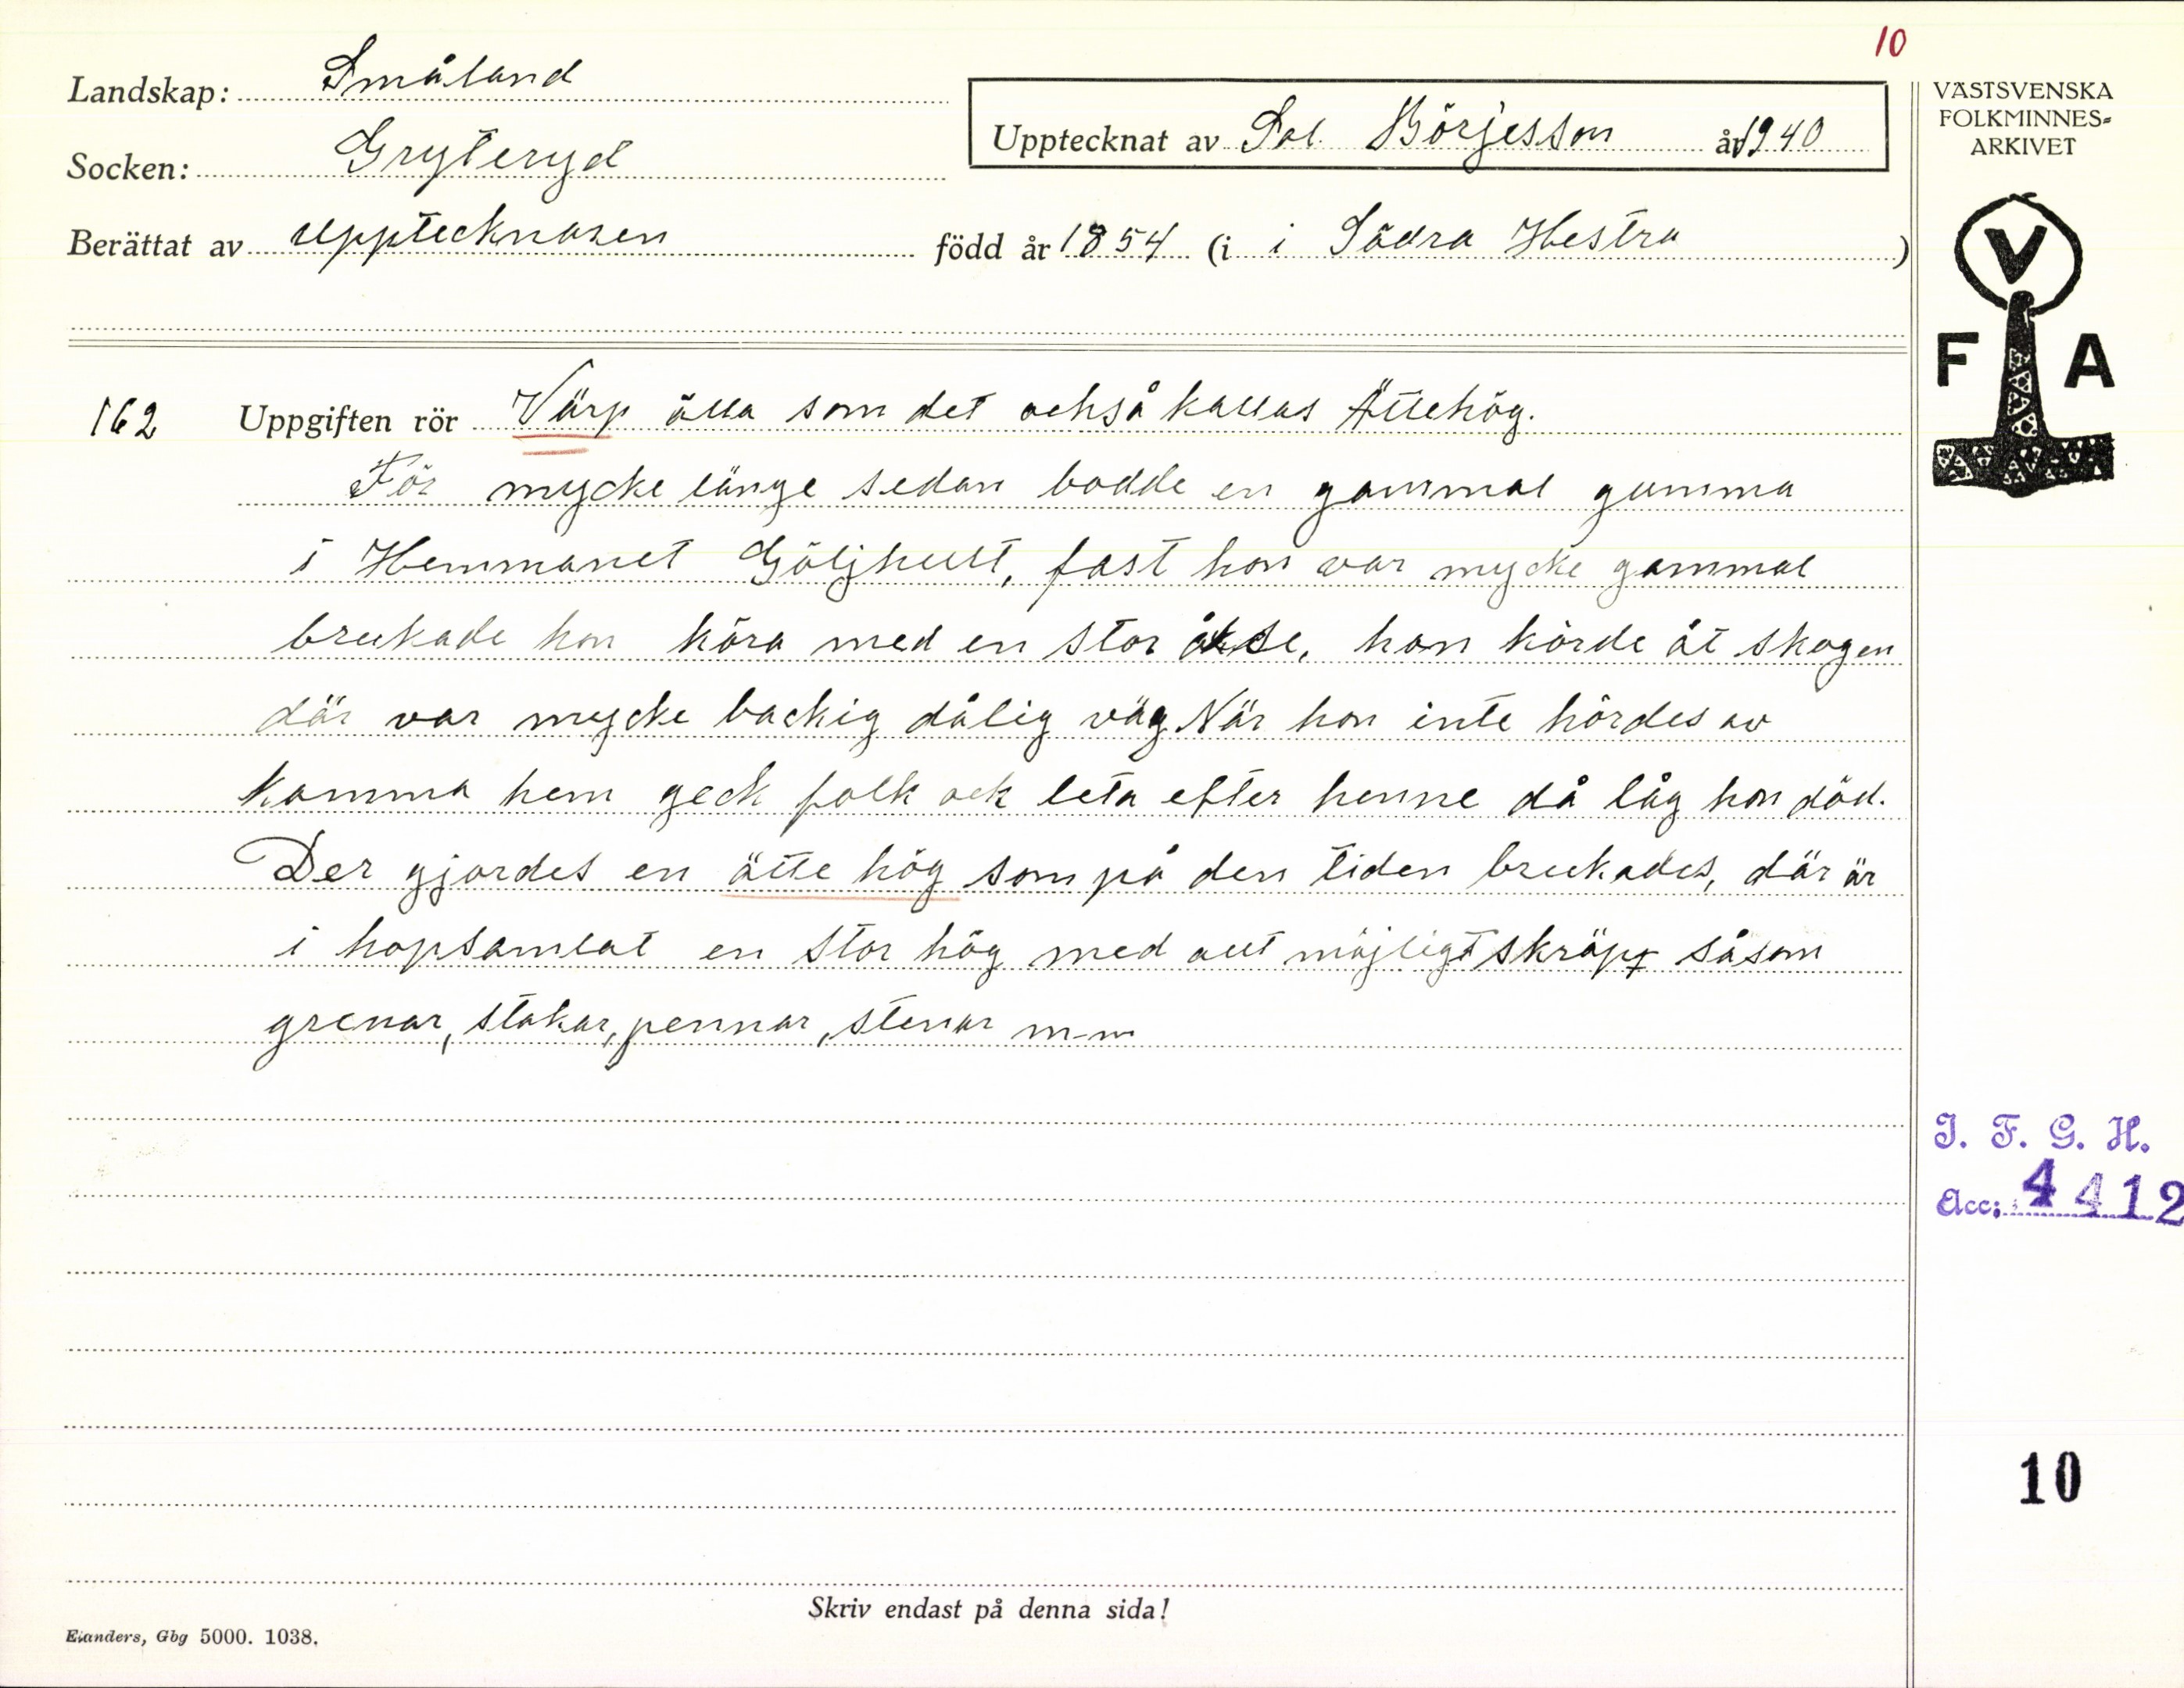 10
Landskap: Småland
Socken: Gryteryd
Upptecknat av Sal. Börjesson år 1940
Berättat av Upptecknaren född år 1854 (i i Södra Hestra )
VÄSTSVENSKA
FOLKMINNES-
ARKIVET
V
F A
162 Uppgiften rör Värp älla som det också kallas Ättehög.
För mycke länge sedan bodde en gammal gumma
i Hemmanet Göljhult, fast hon var mycke gammal
brukade hon köra med en stor okse, hon körde åt skogen
där var mycke backig dålig väg När hon inte hördes av
komma hem geck folk ock leta efter henne då låg hon död.
Der gjordes en ätte hög som på den tiden brukades, där är
i hopsamlat en stor hög med allt möjligt skräp såsom
grenar, stakar, pennar, stenar m-m
I. F. G. H.
Acc: 4412
10
Skriv endast på denna sida!
Elanders, Gbg 5000. 1038.